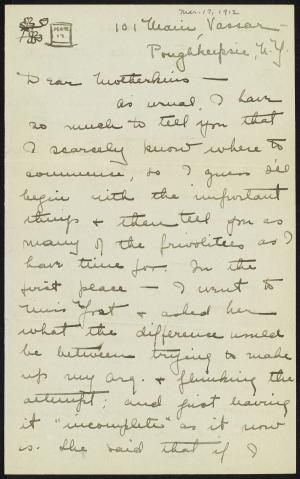 Mar. 17, 1912
MAR
17
101 Main, Vassar —
Poughkeepsie, N.Y.
Dear Motherkins —
as usual, I have
so much to tell you that
I scarcely know where to
commence, so I guess I'll
begin with the important
things & then tell you as
many of the frivolities as I
have time for. In the
first place — I went to
Miss Yost & asked her
what the difference would
be between trying to make
up my arg. & flunking the
attempt; and just leaving
it "incomplete" as it now
is. She said that if I